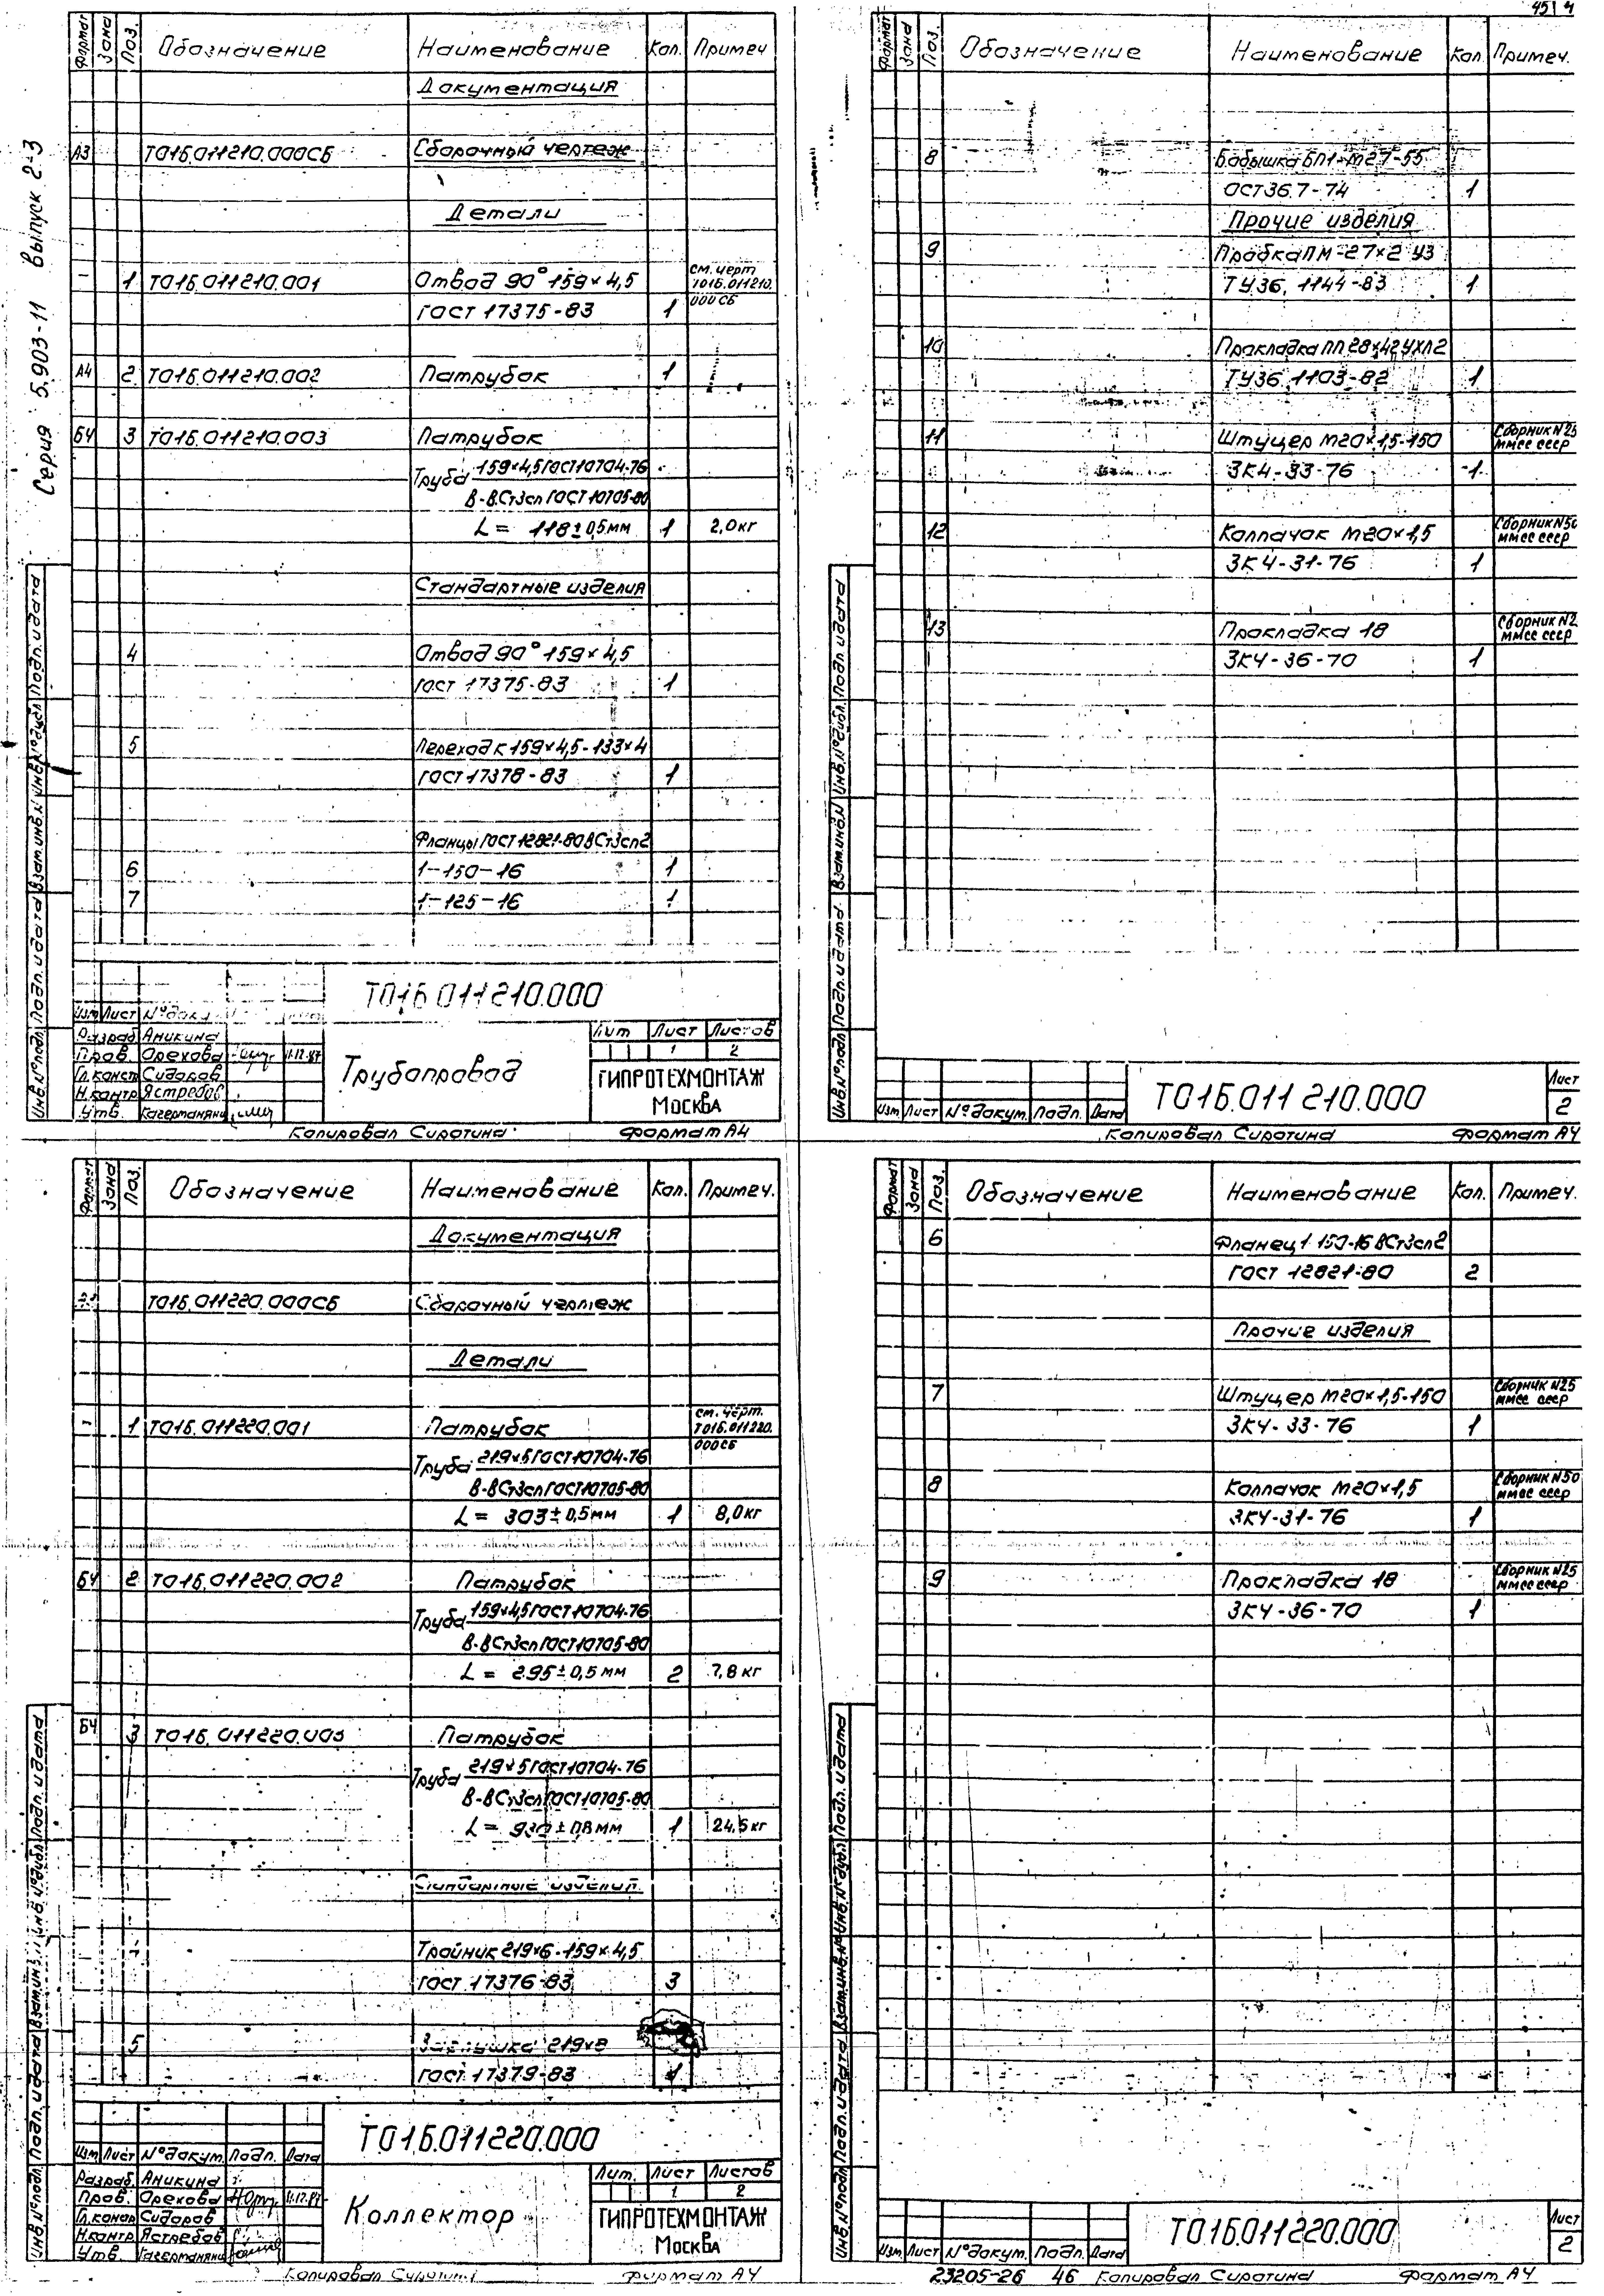 45 | 4
Серия 5.903-11 Выпуск 2-3
Формат Зона Поз. Обозначение Наименование Кол. Примеч
Документация
А3 Т01Б.011210.000СБ Сборочный чертеж
Детали
- 1 Т01Б.011210.001 Отвод 90° 159×4,5 см. черт
ГОСТ 17375-83 1 Т01Б.011210.
000СБ
А4 2 Т01Б.011210.002 Патрубок 1
БЧ 3 Т01Б.011210.003 Патрубок
Труба 159×4,5 ГОСТ 10704-76
В-ВСт3сп ГОСТ 10705-80
L = 118±0,5мм 1 2,0кг
Стандартные изделия
4 Отвод 90° 159×4,5
ГОСТ 17375-83 1
5 Переход К 159×4,5-133×4
ГОСТ 17378-83 1
Фланцы ГОСТ 12821-80 ВСт3сп2
6 1-150-16 1
7 1-125-16 1
Инв.№подл. Подп. и дата Взам.инв.№ Инв.№дубл. Подп. и дата
Т01Б.011210.000
Изм Лист №докум
Разраб. Аникина
Пров. Орехова 11.12.87
Гл.констр Сидоров
Н.контр Ястребов
Утв.
Трубопровод
Лит Лист Листов
1 2
ГИПРОТЕХМОНТАЖ
Москва
Копировал Сиротина Формат А4
Формат Зона Поз. Обозначение Наименование Кол. Примеч.
8 Бобышка БП1-М27-55
ОСТ36.7-74 1
Прочие изделия
9 Пробка ПМ-27×2 У3
ТУ36. 1144-83 1
10 Прокладка ПП 28×42 УХЛ2
ТУ36 1103-82 1
11 Штуцер М20×1,5-150 Сборник N25
ЗК4-33-76 1 ММСС СССР
12 Колпачок М20×1,5 Сборник N50
ЗК4-31-76 1 ММСС СССР
13 Прокладка 18 Сборник N2
ЗК4-36-70 1 ММСС СССР
Инв.№подл. Подп. и дата Взам.инв.№ Инв.№дубл. Подп. и дата
Изм Лист №докум. Подп. Дата
Т01Б.011 210.000
Лист
2
Копировал Сиротина Формат А4
Формат Зона Поз. Обозначение Наименование Кол. Примеч.
Документация
Т01Б.011220.000СБ Сборочный чертеж
Детали
- 1 Т01Б.011220.001 Патрубок см. черт.
Т01Б.011220.
000СБ
Труба 219×5 ГОСТ 10704-76
В-ВСт3сп ГОСТ 10705-80
L = 303±0,5мм 1 8,0кг
БЧ 2 Т01Б.011220.002 Патрубок
Труба 159×4,5 ГОСТ 10704-76
В-ВСт3сп ГОСТ 10705-80
L = 295±0,5мм 2 7,8кг
БЧ 3 Т01Б.011220.003 Патрубок
Труба 219×5 ГОСТ 10704-76
В-ВСт3сп ГОСТ 10705-80
L = 930±0,8мм 1 24,5кг
Стандартные изделия
Тройник 219×6-159×4,5
ГОСТ 17376-83 3
5 Заглушка 219×8
ГОСТ 17379-83 1
Инв.№подл. Подп. и дата Взам.инв.№ Инв.№дубл. Подп. и дата
Т01Б.011220.000
Изм Лист №докум. Подп. Дата
Разраб. Аникина
Пров. Орехова 11.12.87
Гл.констр Сидоров
Н.контр Ястребов
Утв.
Коллектор
Лит. Лист Листов
1 2
ГИПРОТЕХМОНТАЖ
Москва
Копировал Сиротина Формат А4
Формат Зона Поз. Обозначение Наименование Кол. Примеч.
6 Фланец 1-150-16 ВСт3сп2
ГОСТ 12821-80 2
Прочие изделия
7 Штуцер М20×1,5-150 Сборник N25
ЗК4-33-76 1 ММСС СССР
8 Колпачок М20×1,5 Сборник N50
ЗК4-31-76 1 ММСС СССР
9 Прокладка 18 Сборник N25
ЗК4-36-70 1 ММСС СССР
Инв.№подл. Подп. и дата Взам.инв.№ Инв.№дубл. Подп. и дата
Изм Лист №докум. Подп. Дата
Т01Б.011220.000
Лист
2
23205-26 46 Копировал Сиротина Формат А4